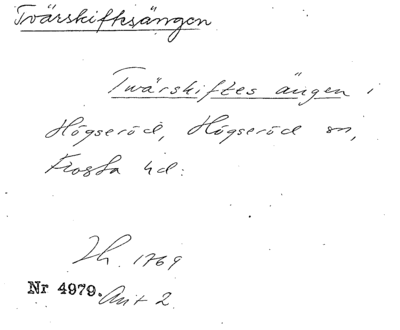 Tvärskiftsängen
Twärskiftes ängen i
Högseröd, Högseröd sn,
Frosta hd:
Lh. 1769
Nr 4979. Akt 2